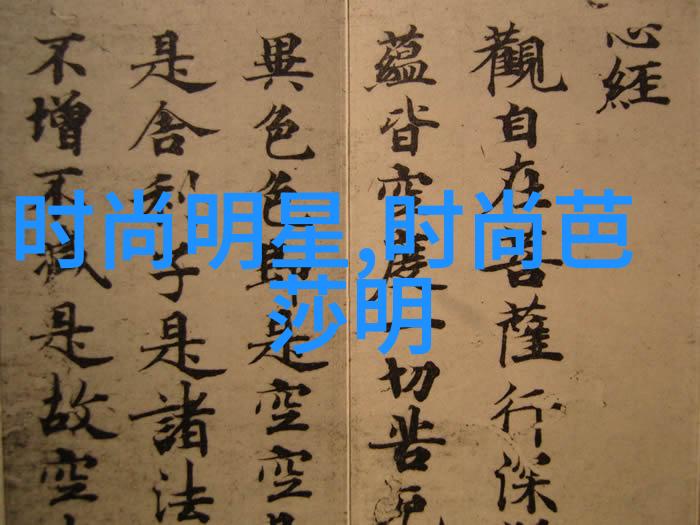 时尚明星,时尚芭
莎明
心經
觀自在菩薩行深
蘊皆空度一切苦厄
異色色即是空空
是舍利子是諸法
不增不減是故空